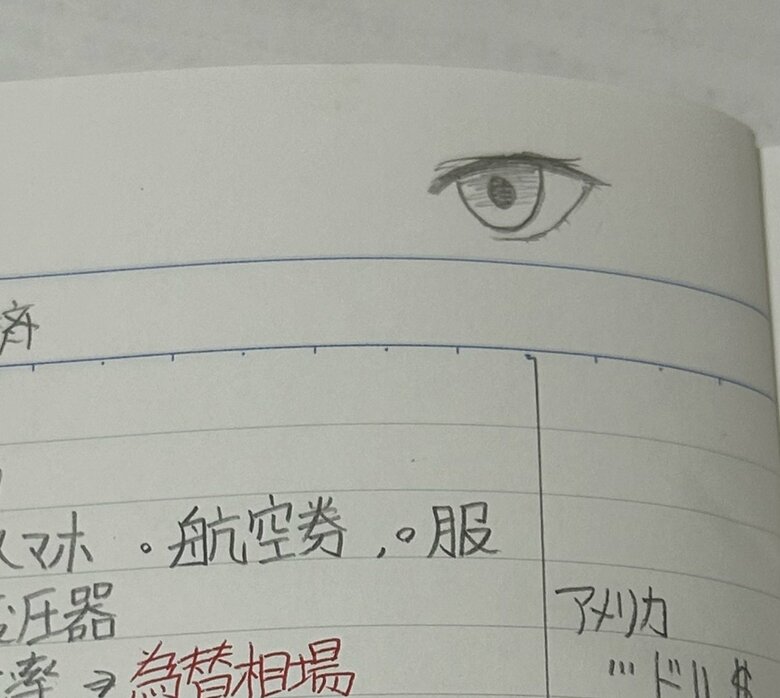 済
スマホ 。航空券 ,。服
変圧器
アメリカ
率→為替相場
…ドル$